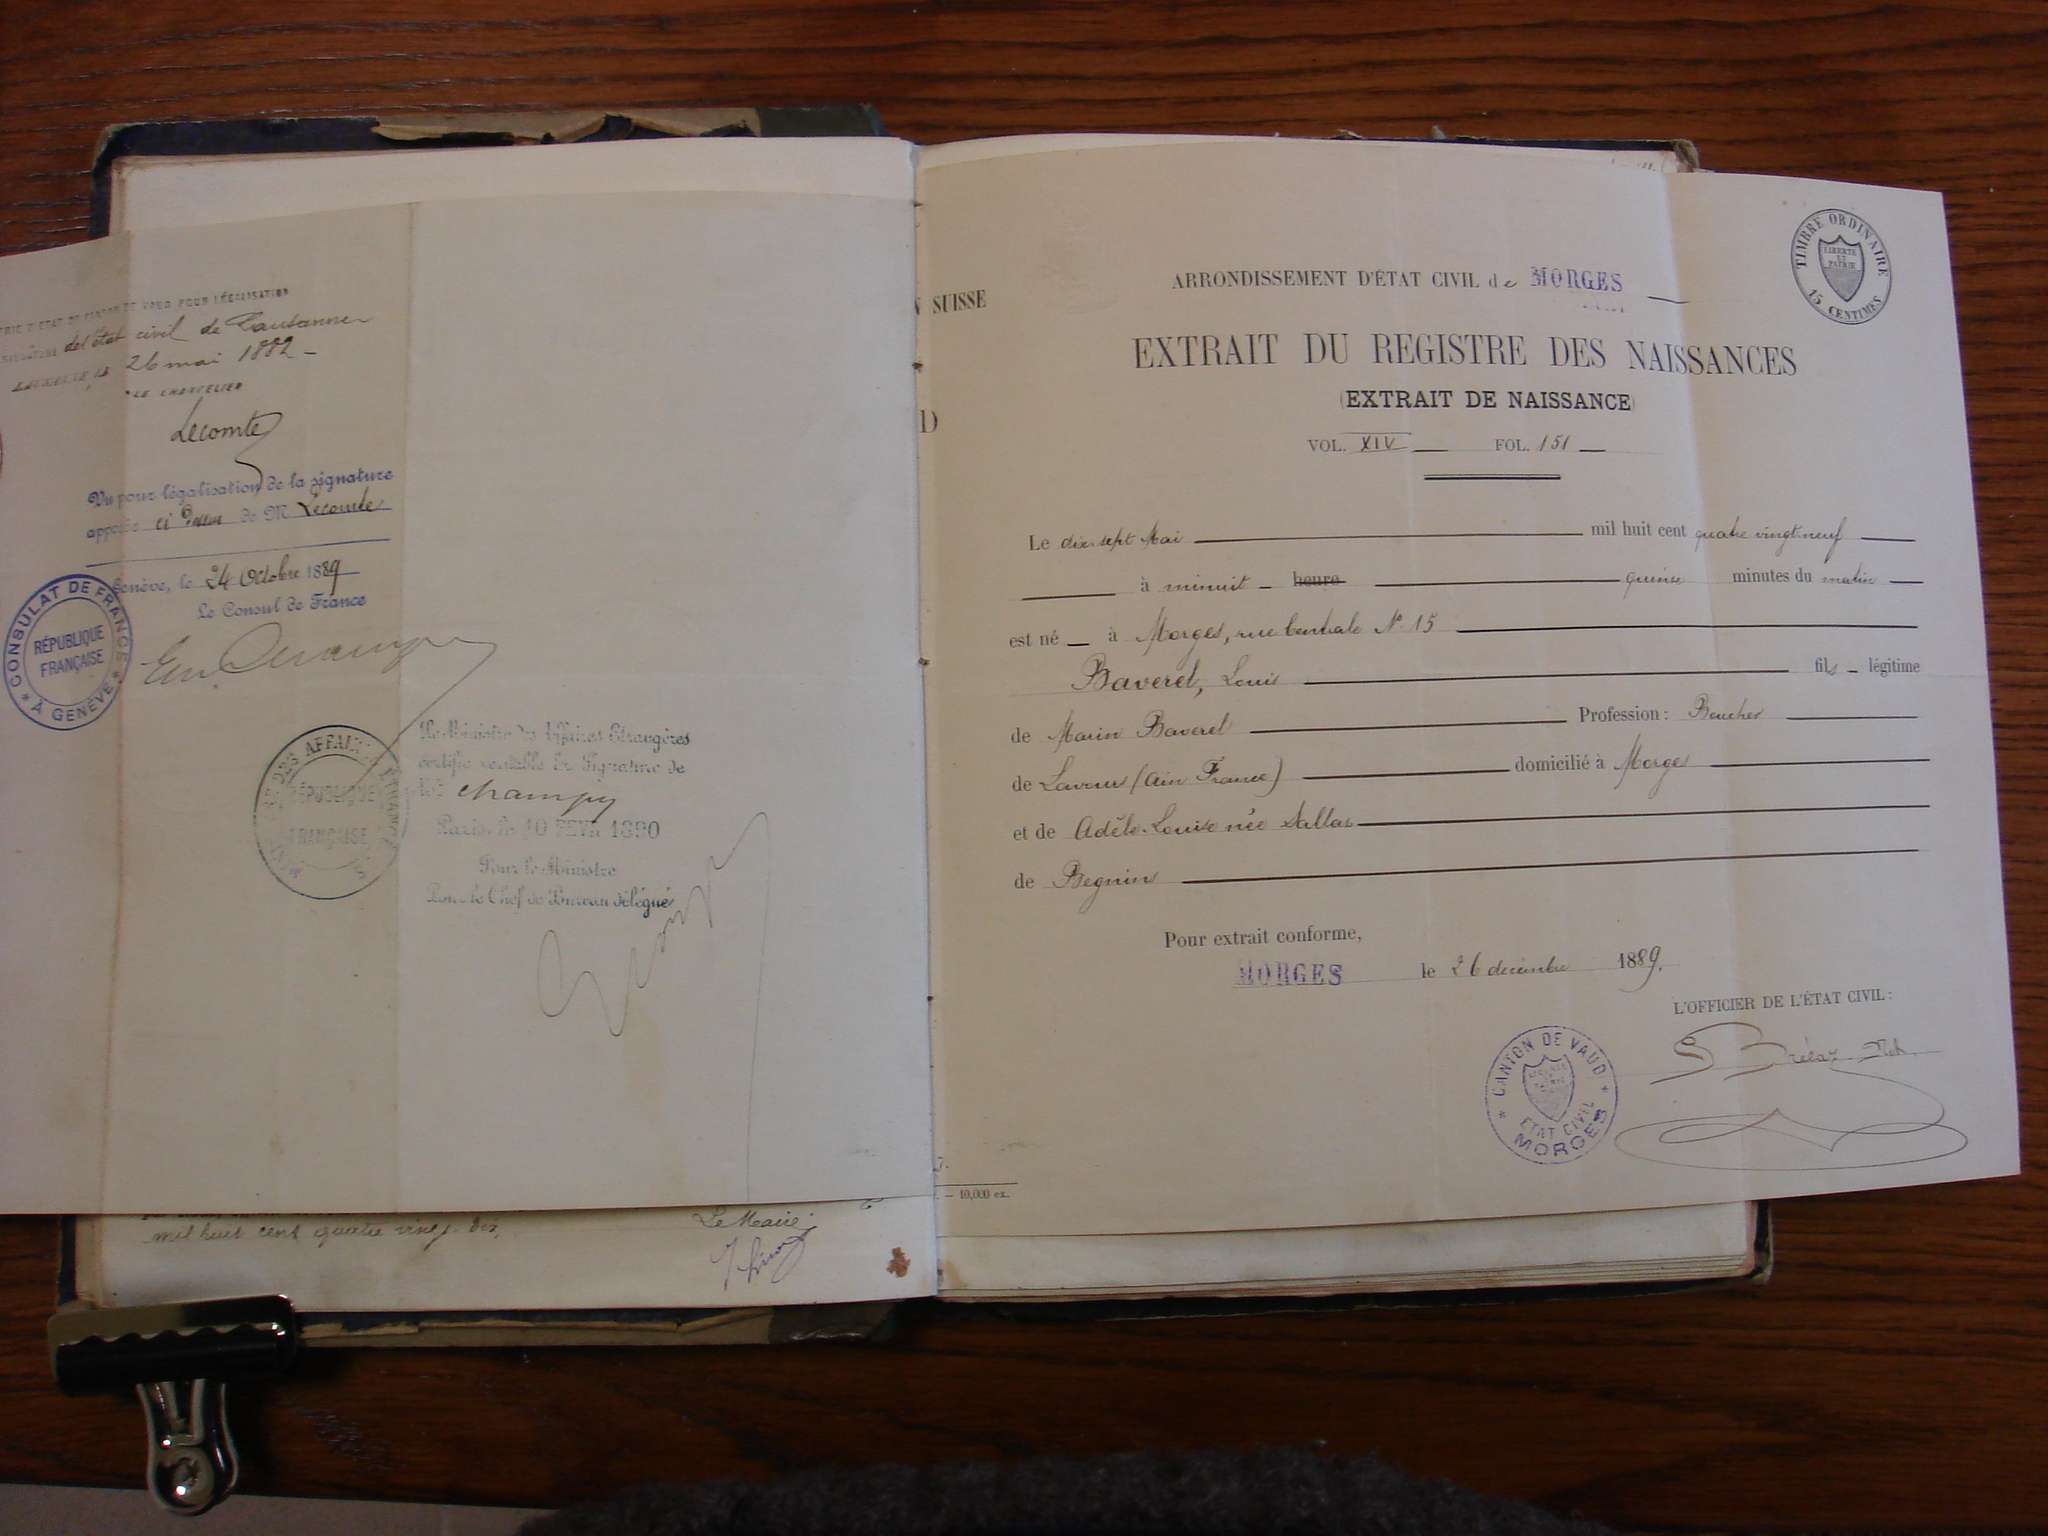 VAUD POUR LÉGALISATION
de l'état civil de Lausanne
26 mai 1882
LE CHANCELIER
Lecomte
Vu pour légalisation de la signature
apposée ci de M Lecomte
Genève, le 24 Octobre 1889
Le Consul de France
CONSULAT DE FRANCE
RÉPUBLIQUE
FRANÇAISE
À GENÈVE
DES AFFAIRES ÉTRANGÈRES
RÉPUBLIQUE
FRANÇAISE
Le Ministre des Affaires Étrangères
certifie véritable la Signature de
M champy
Paris, le 10 FEVR 1890
Pour le Ministre
Pour le Chef de Bureau délégué
mil huit cent quatre vingt dix,
Le Maire
SUISSE
D
10,000 ex.
TIMBRE ORDINAIRE
LIBERTÉ
ET
PATRIE
15 CENTIMES
ARRONDISSEMENT D'ÉTAT CIVIL de MORGES
EXTRAIT DU REGISTRE DES NAISSANCES
(EXTRAIT DE NAISSANCE)
VOL. XIV FOL. 151
Le dix-sept Mai mil huit cent quatre vingt-neuf
à minuit heure quinze minutes du matin
est né à Morges, rue Centrale No 15
Baverel, Louis fils légitime
de Marin Baverel Profession: Boucher
de Lavours (Ain France) domicilié à Morges
et de Adèle-Louise née Dallas
de Begnins
Pour extrait conforme,
MORGES le 26 décembre 1889.
L'OFFICIER DE L'ÉTAT CIVIL:
CANTON DE VAUD
ETAT CIVIL
MORGES